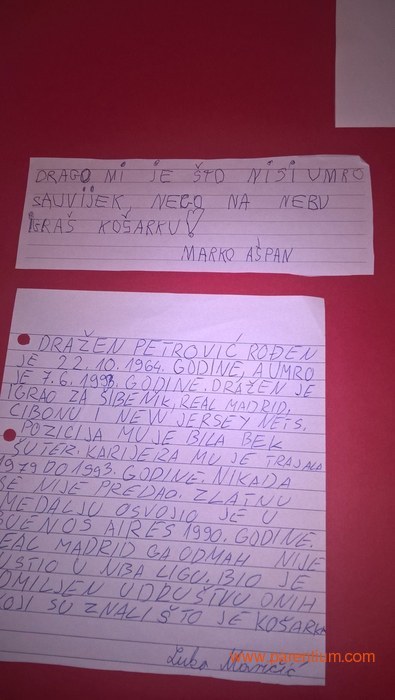 DRAGO MI JE ŠTO NISI UMRO
SAUVIJEK, NEGO NA NEBU
IGRAŠ KOŠARKU!
MARKO AŠPAN
DRAŽEN PETROVIĆ ROĐEN
JE 22.10.1964. GODINE, A UMRO
JE 7.6.1993. GODINE. DRAŽEN JE
IGRAO ZA ŠIBENIK, REAL MADRID,
CIBONU I NEW JERSEY NETS.
POZICIJA MU JE BILA BEK
ŠUTER. KARIJERA MU JE TRAJALA
1979 DO 1993. GODINE. NIKADA
SE NIJE PREDAO. ZLATNU
MEDALJU OSVOJIO JE U
BUENOS AIRES 1990. GODINE.
REAL MADRID GA ODMAH NIJE
USTIO U NBA LIGU. BIO JE
OMILJEN U DRUŠTVU ONIH
KOJI SU ZNALI ŠTO JE KOŠARKA
Luka
www.parentium.com